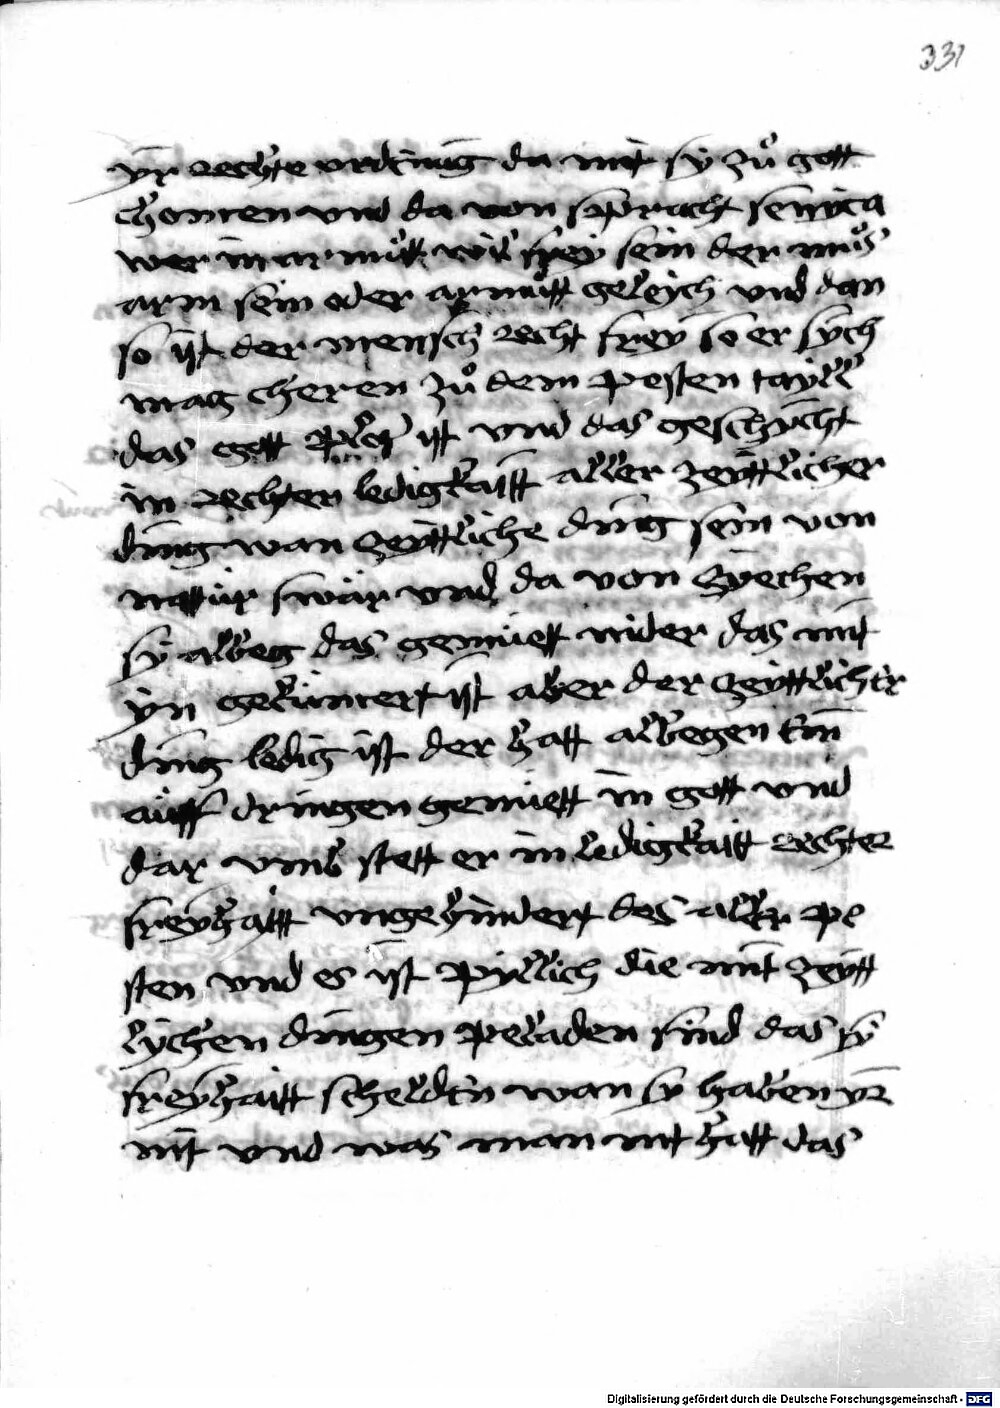 331
yr rechte ordnung da mit sy zuͦ gott
chomen vnd da von sprach seneca
wer in armuͦtt wil frey sein der muͦs
arm sein oder armutt geleych vnd dan
so ist der mensch recht frey so er sych
mag cheren zuͦ dem pesten tayll
das gott selb ist vnd das geschycht
in rechter ledigkaitt aller zeyttlicher
ding wan zeyttliche ding sein von
nattur swär vnd da von zyechen
sy alweg das gemuett nider das mit
yn gekumert ist aber der zeyttlicher
ding ledig ist der hatt alwegen ein
auff dringen gemuett in gott vnd
dar vmb stett er in ledigkaitt rechter
freyhaitt vngehindert des aller pe
sten vnd es ist pyllich die mit zeytt
lychen dingen peladen sind das sy
freyhaitt schelden wan sy haben yr
nit vnd was man nit hatt das
Digitalisierung gefördert durch die Deutsche Forschungsgemeinschaft - DFG